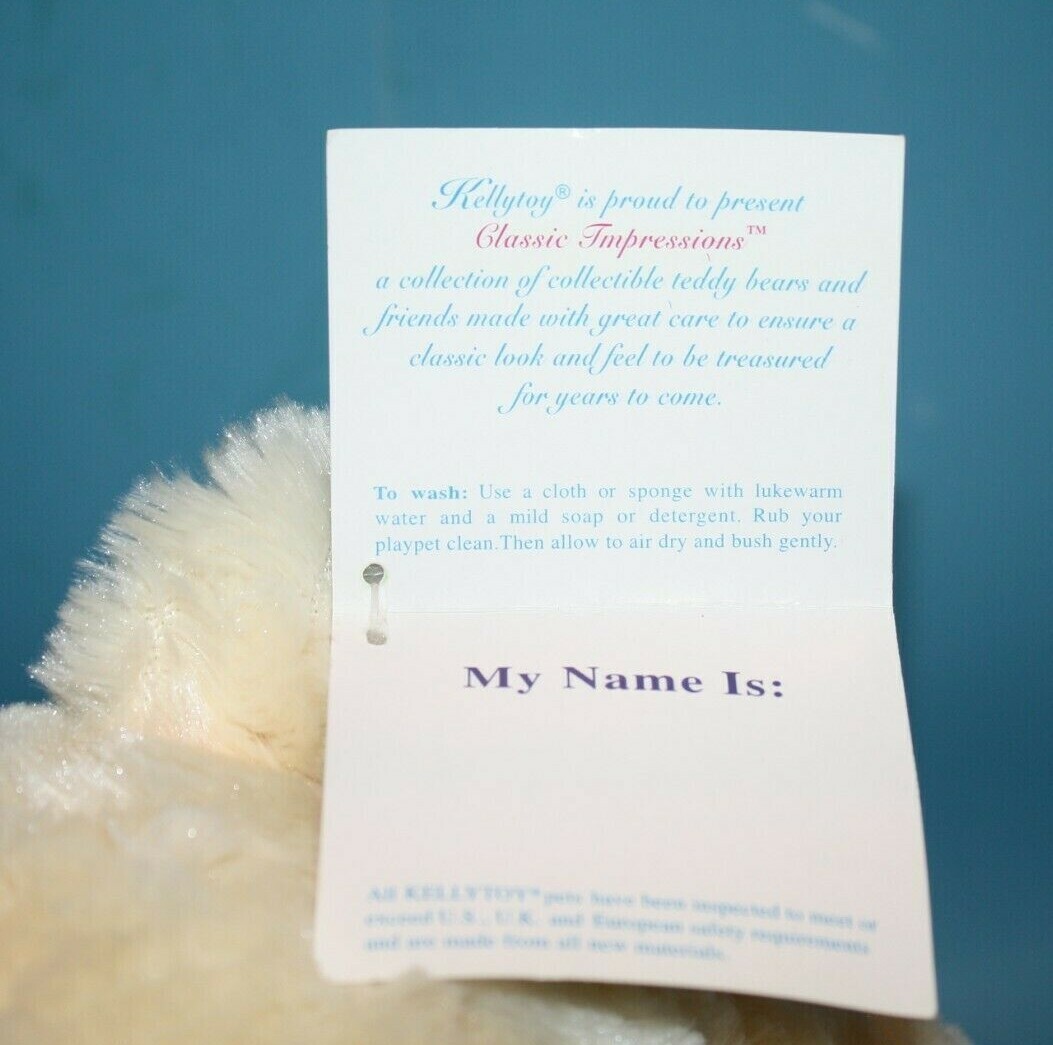 Kellytoy® is proud to present
Classic Impressions™
a collection of collectible teddy bears and
friends made with great care to ensure a
classic look and feel to be treasured
for years to come.
To wash: Use a cloth or sponge with lukewarm
water and a mild soap or detergent. Rub your
playpet clean.Then allow to air dry and bush gently.
My Name Is:
All KELLYTOY™ pets have been inspected to meet or
exceed U.S., U.K. and European safety requirements
and are made from all new materials.